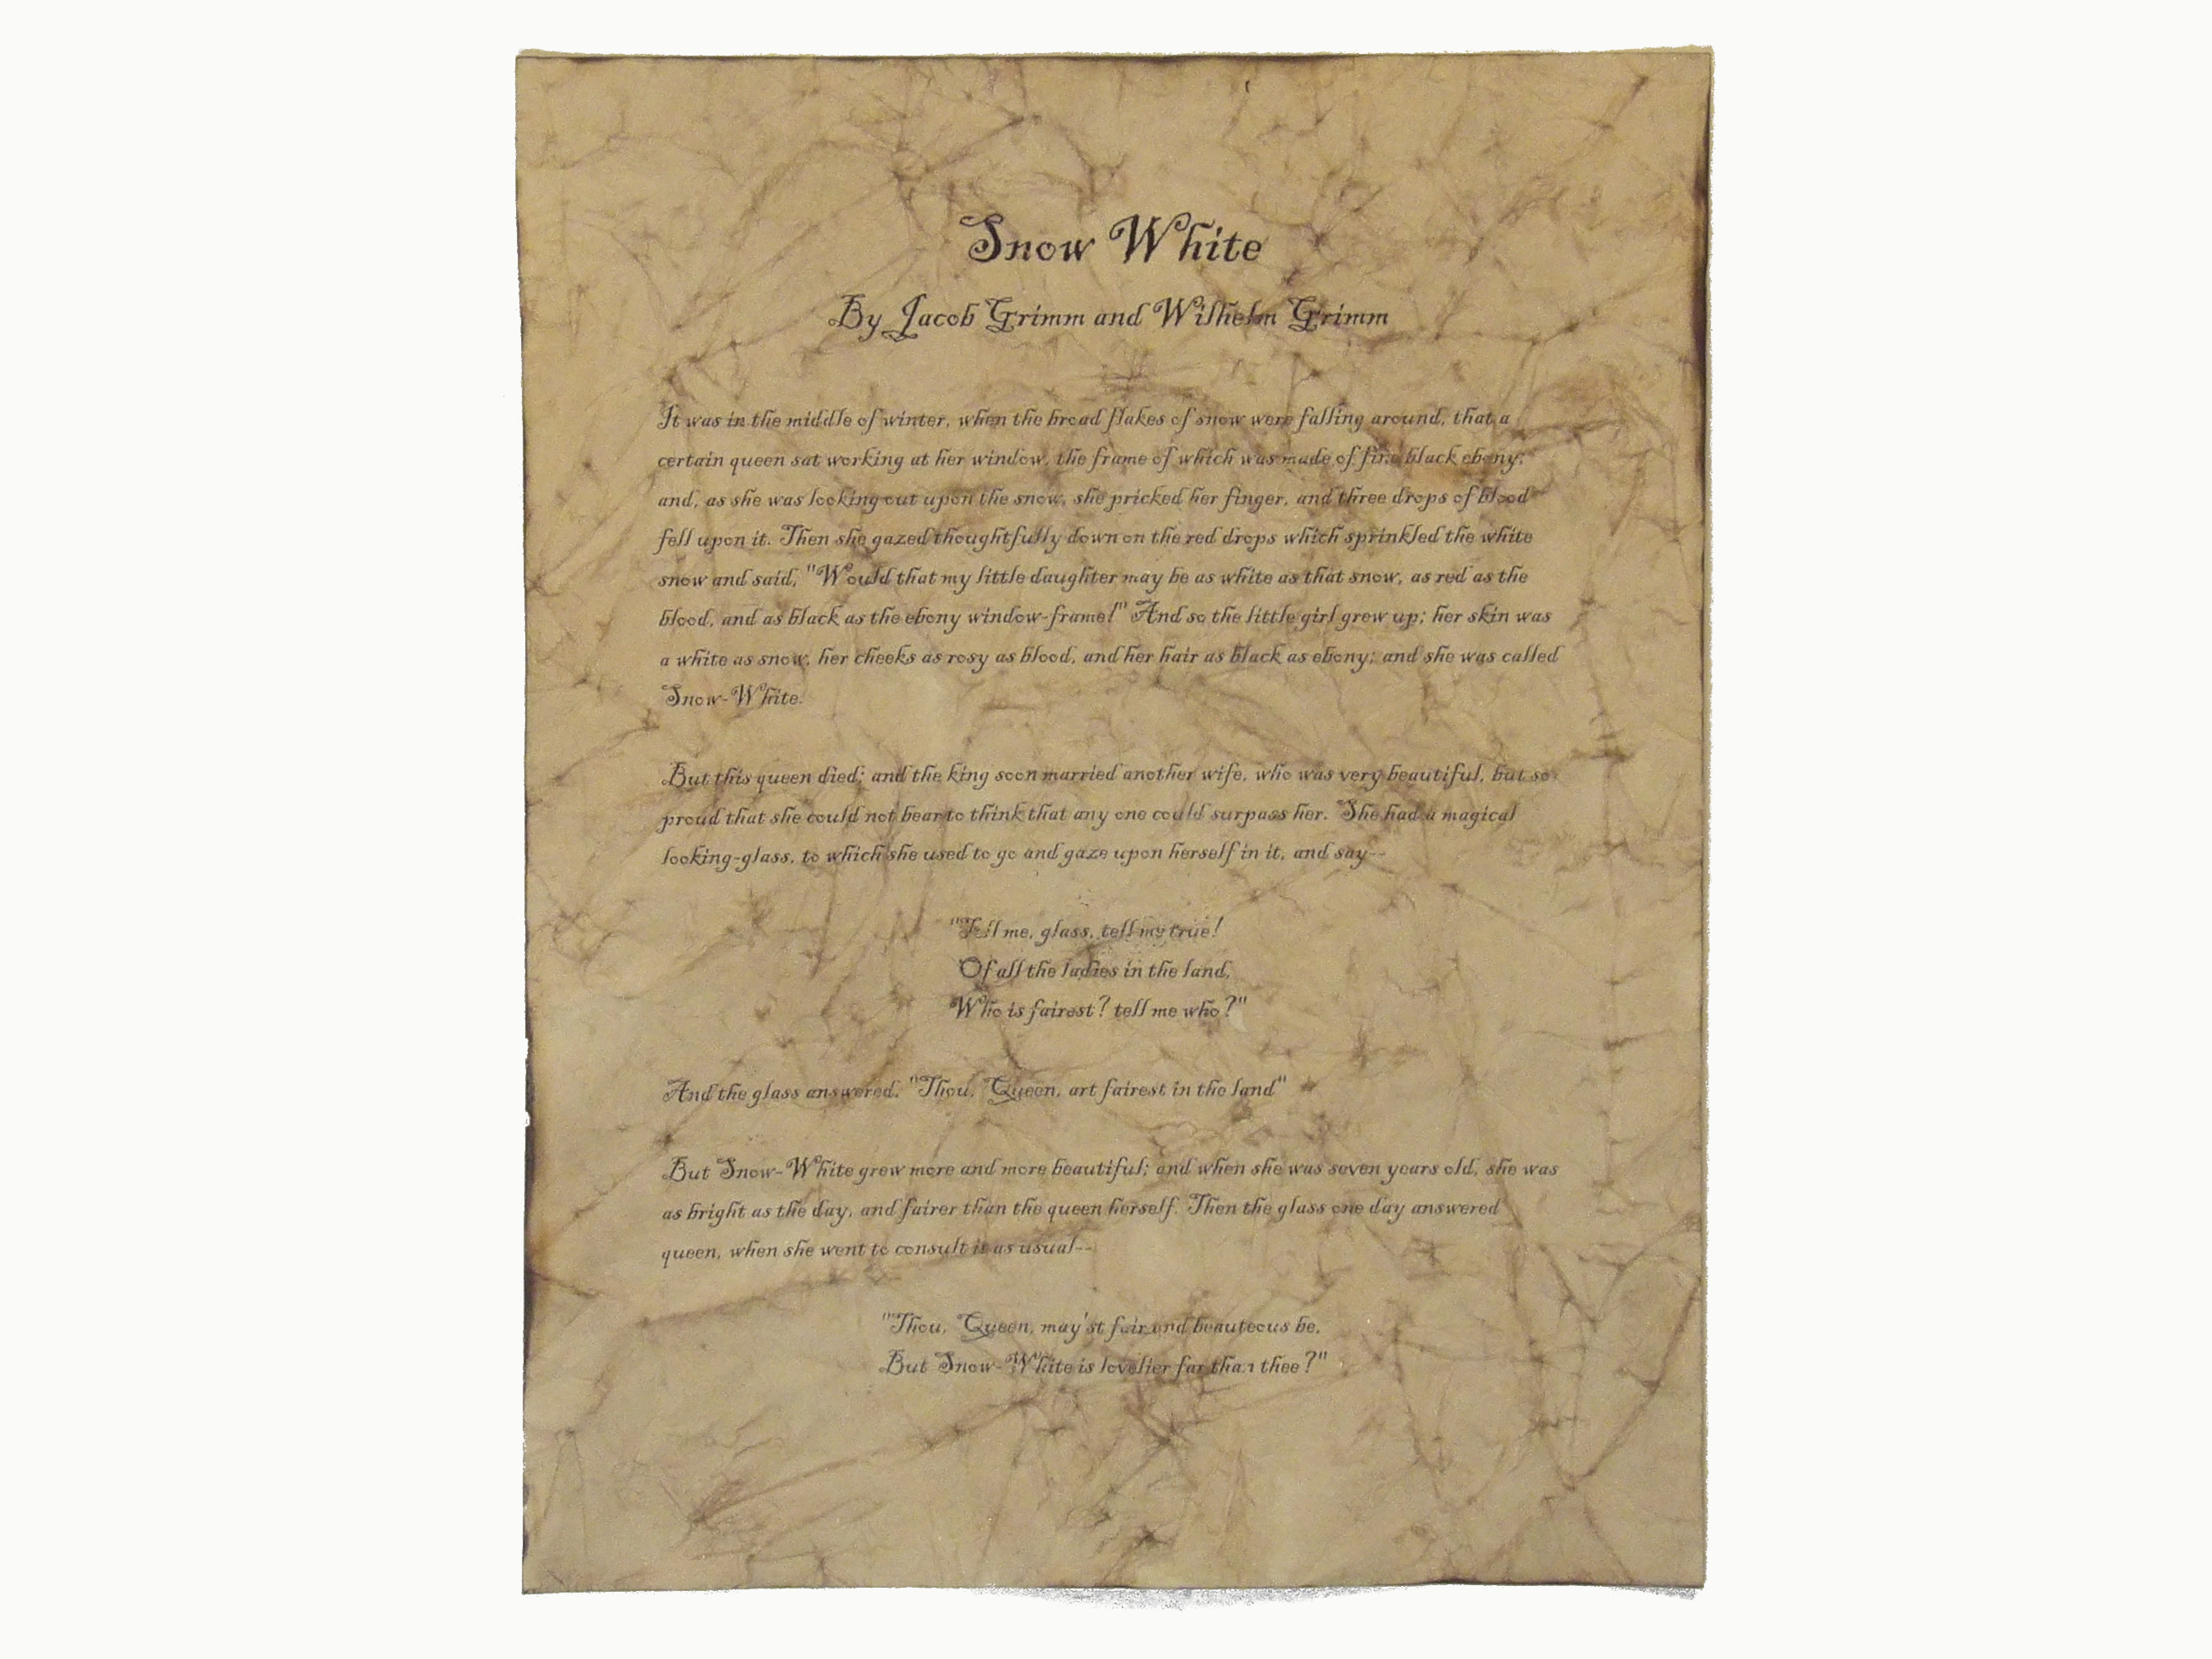 Snow White
By Jacob Grimm and Wilhelm Grimm
It was in the middle of winter, when the broad flakes of snow were falling around, that a
certain queen sat working at her window, the frame of which was made of fine black ebony;
and, as she was looking out upon the snow, she pricked her finger, and three drops of blood
fell upon it. Then she gazed thoughtfully down on the red drops which sprinkled the white
snow and said, "Would that my little daughter may be as white as that snow, as red as the
blood, and as black as the ebony window-frame!" And so the little girl grew up; her skin was
a white as snow, her cheeks as rosy as blood, and her hair as black as ebony; and she was called
Snow-White.
But this queen died; and the king soon married another wife, who was very beautiful, but so
proud that she could not bear to think that any one could surpass her. She had a magical
looking-glass, to which she used to go and gaze upon herself in it, and say--
"Tell me, glass, tell my true!
Of all the ladies in the land,
Who is fairest? tell me who?"
And the glass answered, "Thou, Queen, art fairest in the land"
But Snow-White grew more and more beautiful; and when she was seven years old, she was
as bright as the day, and fairer than the queen herself. Then the glass one day answered
queen, when she went to consult it as usual--
"Thou, Queen, may'st fair and beauteous be,
But Snow-White is lovelier far than thee?"